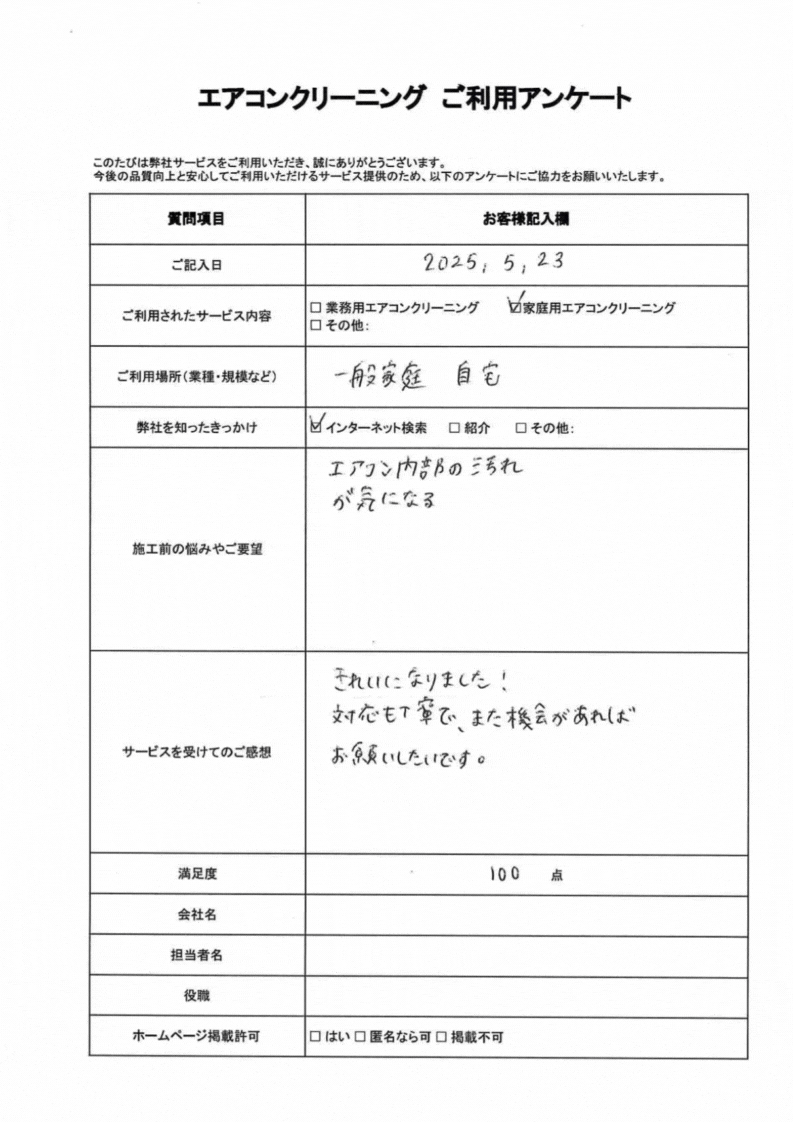 エアコンクリーニング ご利用アンケート
このたびは弊社サービスをご利用いただき、誠にありがとうございます。
今後の品質向上と安心してご利用いただけるサービス提供のため、以下のアンケートにご協力をお願いいたします。
質問項目 お客様記入欄
ご記入日 2025, 5, 23
ご利用されたサービス内容 □ 業務用エアコンクリーニング ☑家庭用エアコンクリーニング
□ その他:
ご利用場所(業種・規模など) 一般家庭 自宅
弊社を知ったきっかけ ☑インターネット検索 □ 紹介 □ その他:
施工前の悩みやご要望 エアコン内部の汚れ
が気になる
サービスを受けてのご感想 きれいになりました!
対応も丁寧で、また機会があれば
お願いしたいです。
満足度 100 点
会社名
担当者名
役職
ホームページ掲載許可 □ はい □ 匿名なら可 □ 掲載不可